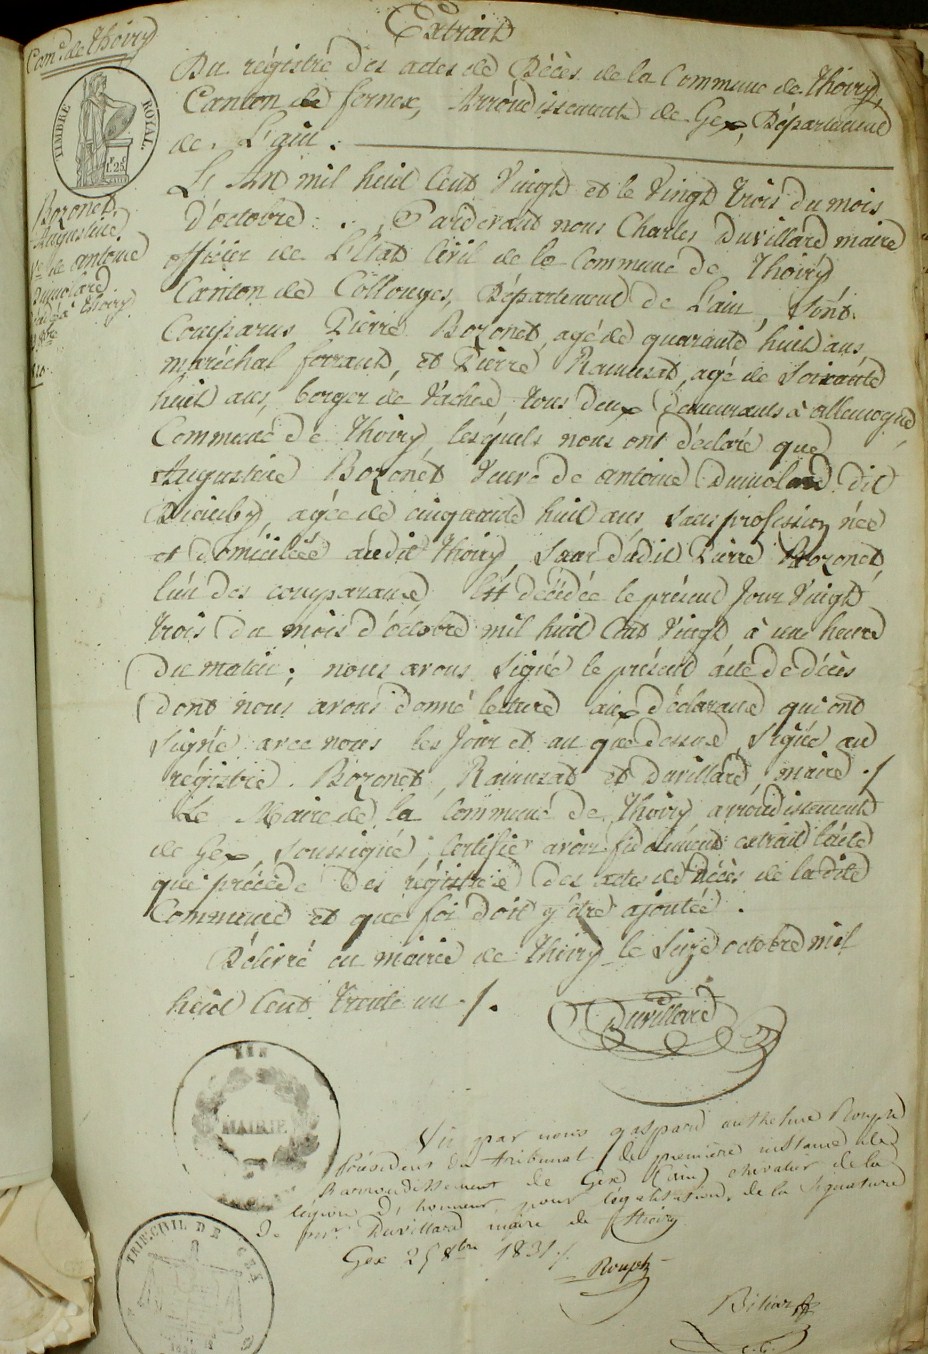 Extrait
Com.e de Thoiry
TIMBRE ROYAL.
1F 25c
Du régistre des actes de Décès de la Commune de Thoiry,
Canton de fernex, Arrondissement de Gex, Département
de L'ain.
Bozonet
Augustine
V.e de antoine
Dumolard
L'An mil huit Cent Vingt et le Vingt trois du mois
D'octobre . Pardevant nous Charles Duvillard maire
officier de L'Etat Civil de la Commune de Thoiry
Canton de Collonges, Département de L'ain, Sont
Comparus Pierre Bozonet, agé de quarante huit ans,
maréchal ferrant, et Pierre Ramuzat, agé de Soixante
huit ans, berger de Vaches, tous deux demeurants à allemogne,
Commune de Thoiry, lesquels nous ont déclaré que
Augustine Bozonet Veuve de antoine Dumolard dit
agée de cinquante huit ans, Sans profession, née
et domiciliée audit Thoiry, Sœur dudit Pierre Bozonet,
l'un des comparans Est décédée le présent Jour Vingt
trois du mois d'octobre mil huit Cent Vingt à une heure
Du matin ; nous avons Signé le présent acte de décès
Dont nous avons donné lecture aux déclarans qui ont
Signé avec nous les Jour et an que dessus, Signé au
régistre. Bozonet, Ramuzat et Duvillard, maire ./
Le Maire de la Commune de Thoiry arrondissement
de Gex, Soussigné, Certifie avoir fidelement extrait l'acte
qui précède Des régistres des actes de Décès de la dite
Commune et que foi doit y être ajoutée.
Délivré en mairie de Thoiry le Seize octobre mil
huit Cent trente un ./.
Duvillard
AIN
MAIRIE
Vu par nous gaspard anthelme Rouph
Président du tribunal de première instance de
l'arrondissement de Gex (ain) chevalier de la
légion d'honneur, pour légalisation de la Signature
de mr. Duvillard maire de Thoiry
Gex 25 8bre 1831 ./.
Rouph
TRIB. CIVIL DE GEX